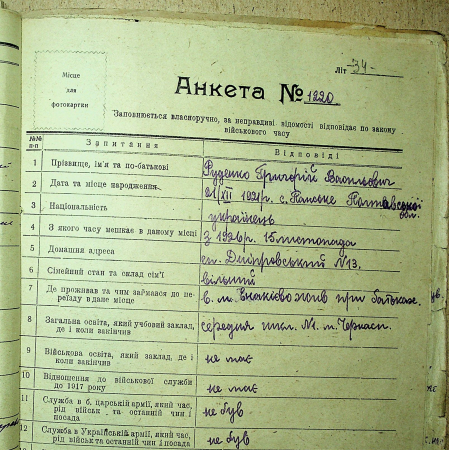 Літ -34-
Місце
для
фотокартки
Анкета № 1220
Заповнюється власноручно, за неправдиві відомості відповідає по закону
військового часу
№№ п-п Запитання Відповіді
1 Прізвище, ім'я та по-батькові Руденко Григорій Васильович
2 Дата та місце народження. 21/XII 1921р. с. Панське Полтавської обл.
3 Національність українець
4 З якого часу мешкає в даному місці з 1926р. 15 листопада
5 Домашня адреса сп. Дніпровський N13.
6 Сімейний стан та склад сім'ї вільний
7 Де проживав та чим займався до переїзду в дане місце в. м. жив при батьках.
8 Загальна освіта, який учбовий заклад, де і коли закінчив середня шк. №1. м. Черкаси.
9 Військова освіта, який заклад, де і коли закінчив не має
10 Відношення до військової служби до 1917 року не має
11 Служба в б. царській армії, який час, рід військ та останній чин і посада не був
12 Служба в Українській армії, який час, рід військ та останній чин і посада не був